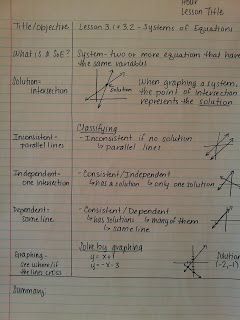 Hour
Lesson Title
Title/Objective Lesson 3.1 + 3.2 - Systems of Equations
What is a SoE? System - two or more equation that have
the same variables
Solution -
intersection
Solution
When graphing a system,
the point of intersection
represents the solution
Classifying
Inconsistent -
parallel lines
- Inconsistent if no solution
↳ parallel lines
Independent -
one intersection
- Consistent/Independent
↳ has a solution ↳ only one solution
Dependent -
same line
- Consistent/Dependent
↳ has solutions ↳ many of them
↳ same line
Graphing -
see where/if
the lines cross
Solve by graphing
y = x + 1
y = -x - 3
Solution
(-2, -1)
Summary: